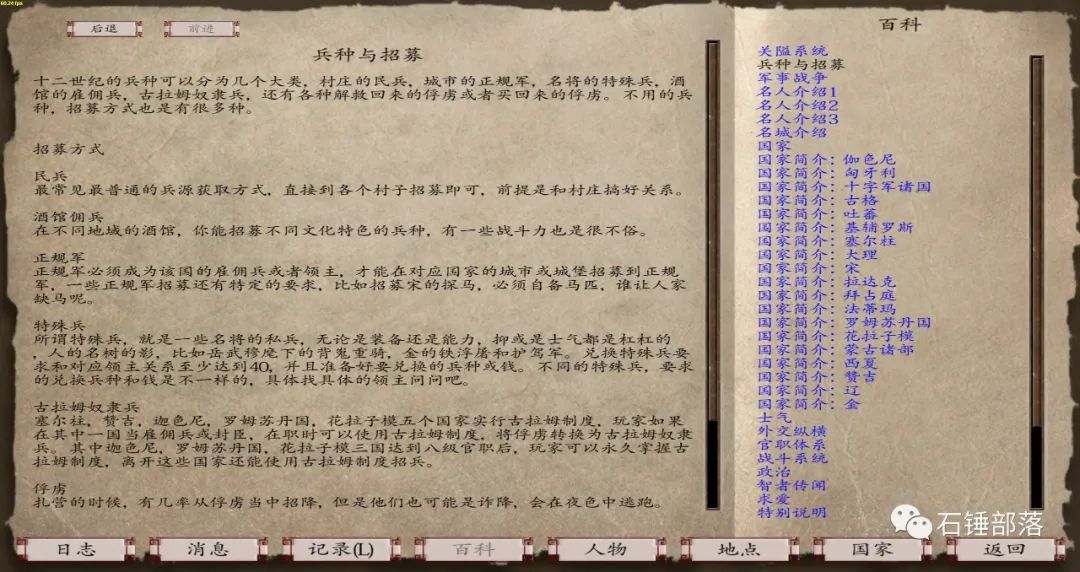 60.24 fps
后退
前进
兵种与招募
十二世纪的兵种可以分为几个大类，村庄的民兵，城市的正规军，名将的特殊兵，酒
馆的雇佣兵，古拉姆奴隶兵，还有各种解救回来的俘虏或者买回来的俘虏。不用的兵
种，招募方式也是有很多种。
招募方式
民兵
最常见最普通的兵源获取方式，直接到各个村子招募即可，前提是和村庄搞好关系。
酒馆佣兵
在不同地域的酒馆，你能招募不同文化特色的兵种，有一些战斗力也是很不俗。
正规军
正规军必须成为该国的雇佣兵或者领主，才能在对应国家的城市或城堡招募到正规
军，一些正规军招募还有特定的要求，比如招募宋的探马，必须自备马匹，谁让人家
缺马呢。
特殊兵
所谓特殊兵，就是一些名将的私兵，无论是装备还是能力，抑或是士气都是杠杠的
，人的名树的影，比如岳武穆麾下的背嵬重骑，金的铁浮屠和护驾军。兑换特殊兵要
求和对应领主关系至少达到40，并且准备好要兑换的兵种或钱。不同的特殊兵，要求
的兑换兵种和钱是不一样的，具体找具体的领主问问吧。
古拉姆奴隶兵
塞尔柱，赞吉，迦色尼，罗姆苏丹国，花拉子模五个国家实行古拉姆制度，玩家如果
在其中一国当雇佣兵或封臣，在职时可以使用古拉姆制度，将俘虏转换为古拉姆奴隶
兵。其中迦色尼，罗姆苏丹国，花拉子模三国达到八级官职后，玩家可以永久掌握古
拉姆制度，离开这些国家还能使用古拉姆制度招兵。
俘虏
扎营的时候，有几率从俘虏当中招降，但是他们也可能是诈降，会在夜色中逃跑。
百科
关隘系统
兵种与招募
军事战争
名人介绍1
名人介绍2
名人介绍3
名城介绍
国家
国家简介：伽色尼
国家简介：匈牙利
国家简介：十字军诸国
国家简介：古格
国家简介：吐蕃
国家简介：基辅罗斯
国家简介：塞尔柱
国家简介：大理
国家简介：宋
国家简介：拉达克
国家简介：拜占庭
国家简介：法蒂玛
国家简介：罗姆苏丹国
国家简介：花拉子模
国家简介：蒙古诸部
国家简介：西夏
国家简介：赞吉
国家简介：辽
国家简介：金
士气
外交纵横
官职体系
战斗系统
政治
智者传闻
求爱
特别说明
石锤部落
日志
消息
记录(L)
百科
人物
地点
国家
返回